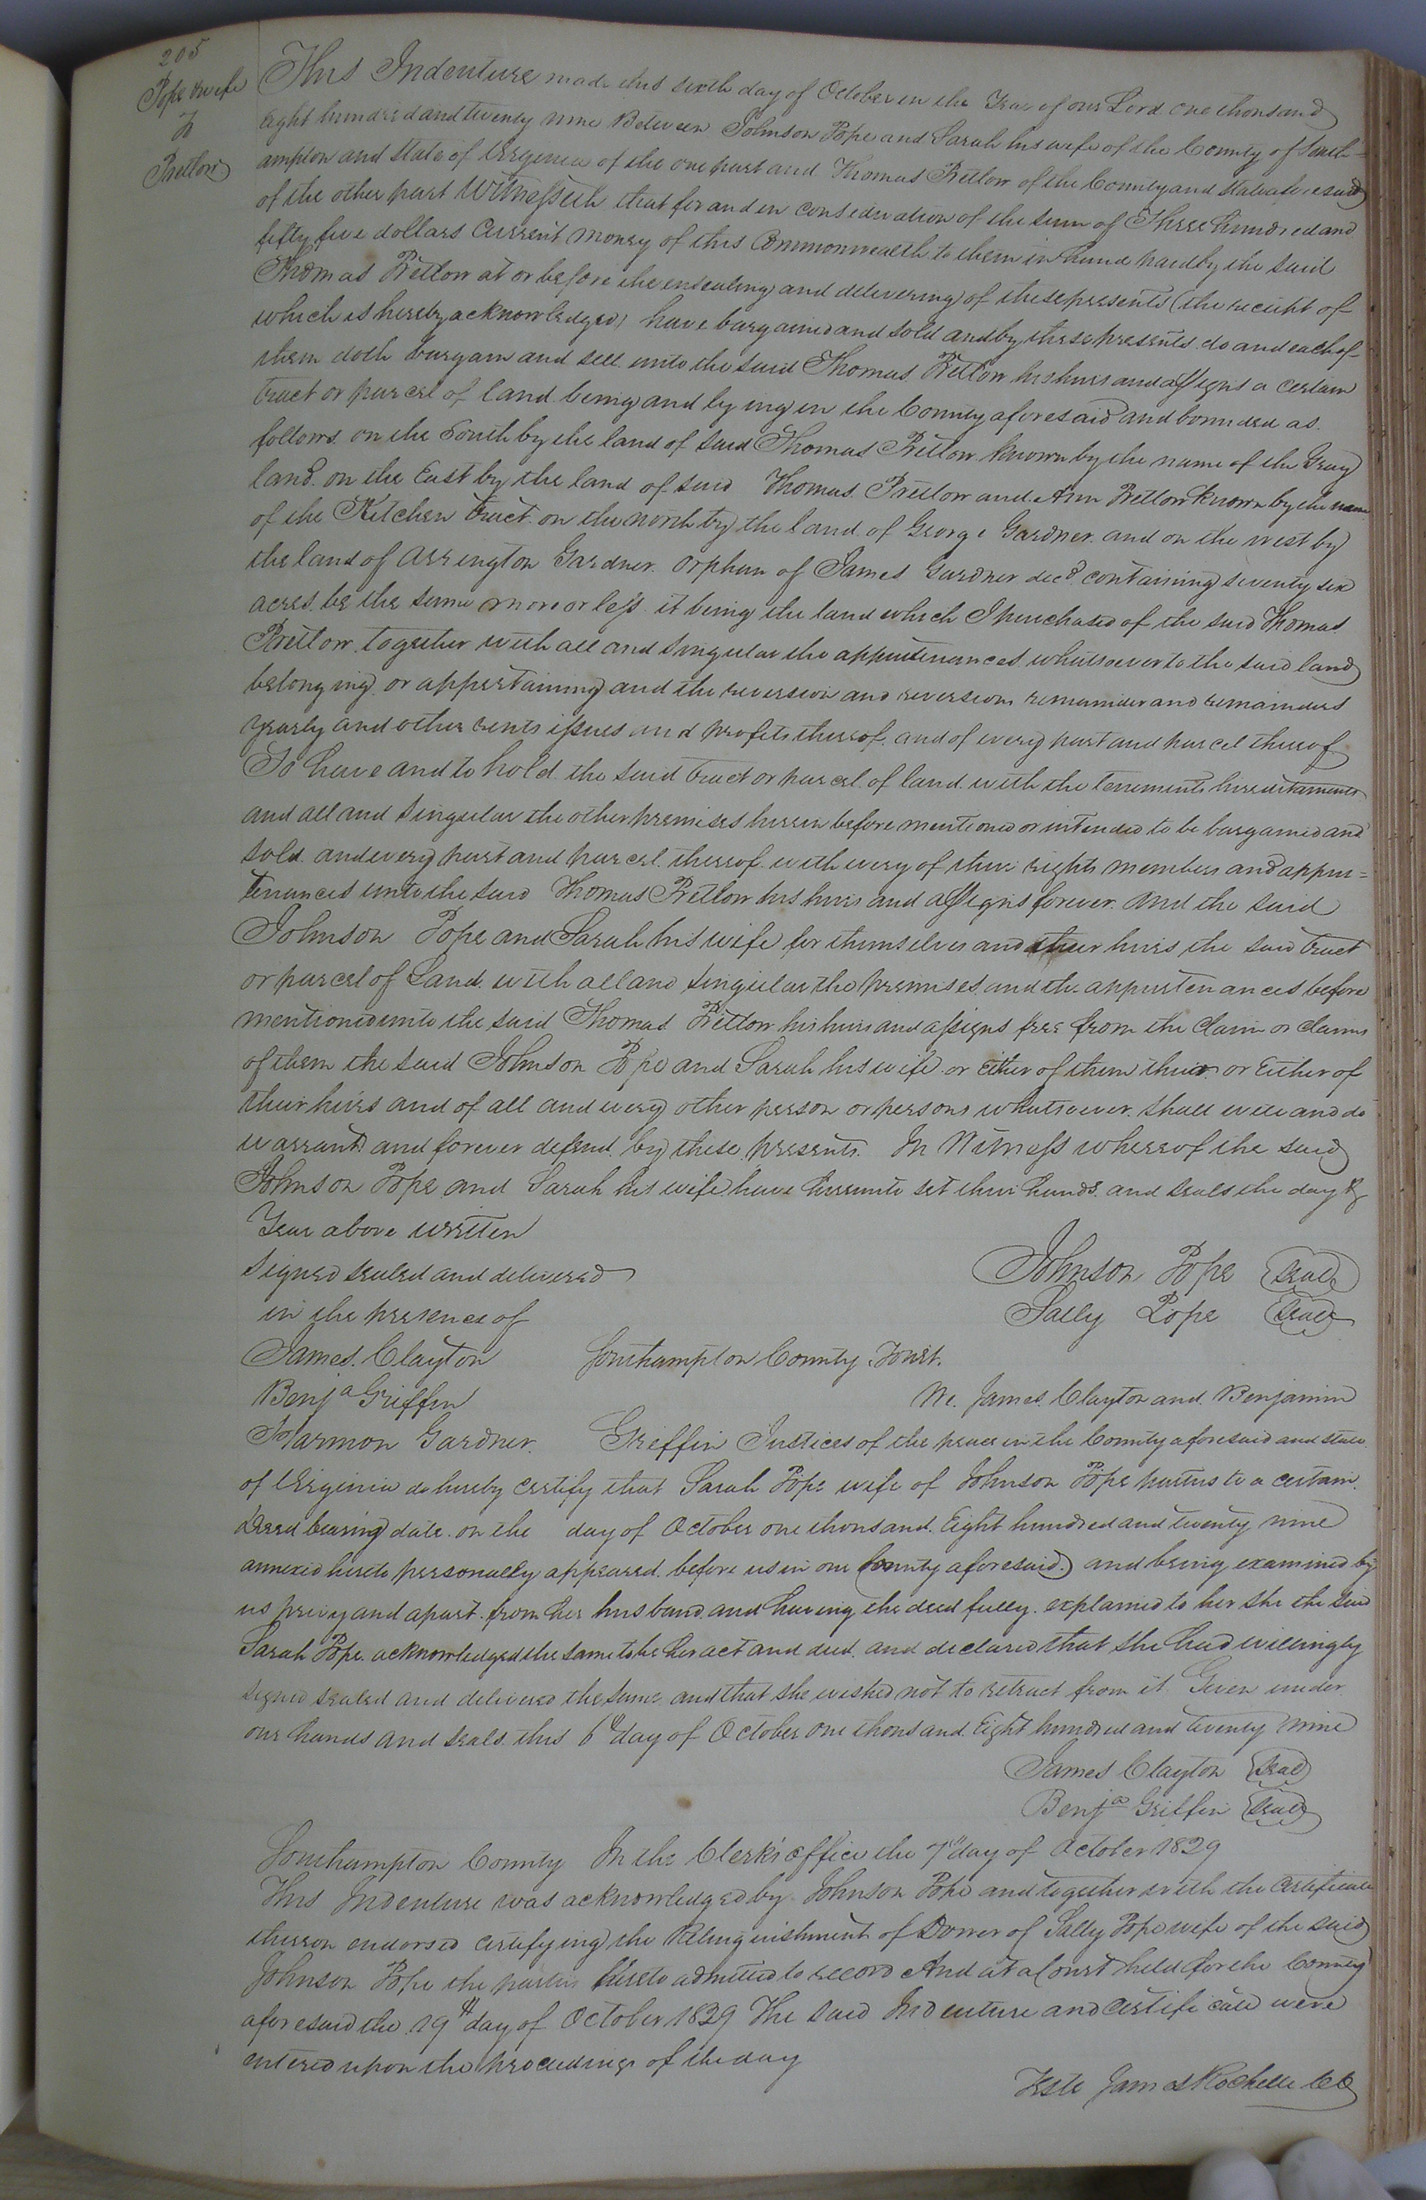 205
Pope & wife
To
Pretlow
This Indenture made this sixth day of October in the Year of our Lord One thousand
Eight hundred and twenty nine Between Johnson Pope and Sarah his wife of the County of South=
ampton and State of Virginia of the one part and Thomas Pretlow of the County and State aforesaid
of the other part Witnesseth that for and in consideration of the sum of Three hundred and
fifty five dollars Current money of this Commonwealth to them in hand paid by the said
Thomas Pretlow at or before the ensealing and delivering of these presents (the receipt of
which is hereby acknowledged) have bargained and sold and by these presents do and each of
them doth bargain and sell unto the said Thomas Pretlow his heirs and assigns a certain
tract or parcel of land being and lying in the County aforesaid and bounded as
follows. on the South by the land of said Thomas Pretlow known by the name of the Gray
land. on the East by the land of said Thomas Pretlow and Ann Pretlow known by the name
of the Kitchen tract. on the north by the land of George Gardner. and on the west by
the land of Arrington Gardner. Orphan of James Gardner decd. containing seventy six
acres. be the same more or less it being the land which I purchased of the said Thomas
Pretlow. together with all and singular the appurtenances whatsoever to the said land
belonging. or appertaining and the reversion and reversions remainder and remainders
yearly and other rents issues and profits thereof. and of every part and parcel thereof
To have and to hold the said tract or parcel of land with the tenements hereditaments
and all and singular the other premises herein before mentioned or intended to be bargained and
sold. and every part and parcel thereof with every of their rights members and appur=
tenances unto the said Thomas Pretlow his heirs and assigns forever. And the said
Johnson Pope and Sarah his wife for themselves and their heirs the said tract
or parcel of Land with all and singular the premises and the appurtenances before
mentioned unto the said Thomas Pretlow his heirs and assigns free from the claim or claims
of them the said Johnson Pope and Sarah his wife or either of them their or Either of
their heirs and of all and every other person or persons whatsoever. shall will and do
warrant and forever defend by these presents. In Witness whereof the said
Johnson Pope and Sarah his wife have hereunto set their hands and seals the day &
Year above written
Signed sealed and delivered
in the presence of
Johnson Pope (Seal)
Sally Pope (Seal)
James Clayton
Benja Griffin
Harmon Gardner.
Southampton County Towit.
We. James Clayton and Benjamin
Griffin Justices of the peace in the County aforesaid and state
of Virginia do hereby certify that Sarah Pope wife of Johnson Pope parties to a certain
Deed bearing date on the day of October one thousand Eight hundred and twenty nine
annexed hereto personally appeared before us in our County aforesaid. and being examined by
us privy and apart from her husband and having the deed fully explained to her she the said
Sarah Pope acknowledged the same to be her act and deed. and declared that she had willingly
signed sealed and delivered the same and that she wished not to retract from it. Given under
our hands and seals this 6th day of October one thousand Eight hundred and twenty nine
James Clayton (Seal)
Benja Griffin (Seal)
Southampton County In the Clerk's office the 7th day of October 1829
This Indenture was acknowledged by Johnson Pope and together with the certificate
thereon endorsed certifying the Relinquishment of Dower of Sally Pope wife of the said
Johnson Pope the parties hereto admitted to record And at a Court held for the County
aforesaid the 19th day of October 1829 The said Indenture and certificate were
entered upon the proceedings of the day
Teste James Rochelle CC